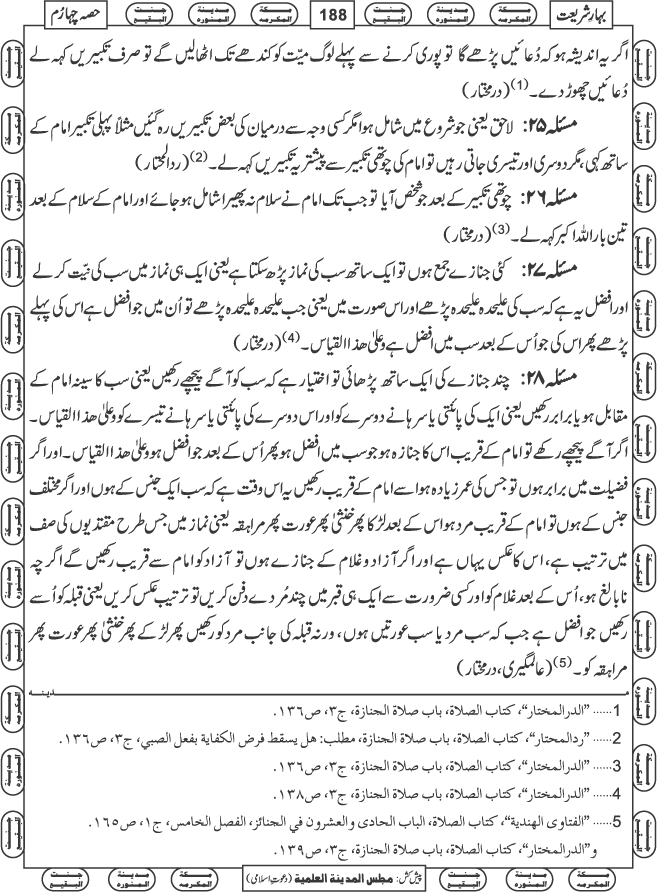 بہارِ شریعت
مکۃ المکرمہ
مدینۃ المنورہ
جنت البقیع
188
مکۃ المکرمہ
مدینۃ المنورہ
جنت البقیع
حصہ چہارم
اگر یہ اندیشہ ہو کہ دُعائیں پڑھے گا تو پوری کرنے سے پہلے لوگ میّت کو کندھے تک اٹھالیں گے تو صرف تکبیریں کہہ لے
دُعائیں چھوڑ دے۔(1) (درمختار)
مسئلہ ۲۵: لاحق یعنی جو شروع میں شامل ہوا مگر کسی وجہ سے درمیان کی بعض تکبیریں رہ گئیں مثلاً پہلی تکبیر امام کے
ساتھ کہی، مگر دوسری اور تیسری جاتی رہیں تو امام کی چوتھی تکبیر سے پیشتر یہ تکبیریں کہہ لے۔(2) (ردالمحتار)
مسئلہ ۲۶: چوتھی تکبیر کے بعد جو شخص آیا تو جب تک امام نے سلام نہ پھیرا شامل ہو جائے اور امام کے سلام کے بعد
تین بار اللہ اکبر کہہ لے۔(3) (درمختار)
مسئلہ ۲۷: کئی جنازے جمع ہوں تو ایک ساتھ سب کی نماز پڑھ سکتا ہے یعنی ایک ہی نماز میں سب کی نیّت کر لے
اور افضل یہ ہے کہ سب کی علیحدہ علیحدہ پڑھے اور اس صورت میں یعنی جب علیحدہ علیحدہ پڑھے تو اُن میں جو افضل ہے اس کی پہلے
پڑھے پھر اس کی جو اُس کے بعد سب میں افضل ہے وعلیٰ ھذا القیاس۔(4) (درمختار)
مسئلہ ۲۸: چند جنازے کی ایک ساتھ پڑھائی تو اختیار ہے کہ سب کو آگے پیچھے رکھیں یعنی سب کا سینہ امام کے
مقابل ہو یا برابر رکھیں یعنی ایک کی پائنتی یا سرہانے دوسرے کو اور اس دوسرے کی پائنتی یا سرہانے تیسرے کو وعلیٰ ھذا القیاس۔
اگر آگے پیچھے رکھے تو امام کے قریب اس کا جنازہ ہو جو سب میں افضل ہو پھر اُس کے بعد جو افضل ہو وعلیٰ ھذا القیاس۔ اور اگر
فضیلت میں برابر ہوں تو جس کی عمر زیادہ ہو اسے امام کے قریب رکھیں یہ اس وقت ہے کہ سب ایک جنس کے ہوں اور اگر مختلف
جنس کے ہوں تو امام کے قریب مرد ہو اس کے بعد لڑکا پھر خنثیٰ پھر عورت پھر مراہقہ یعنی نماز میں جس طرح مقتدیوں کی صف
میں ترتیب ہے، اس کا عکس یہاں ہے اور اگر آزاد و غلام کے جنازے ہوں تو آزاد کو امام سے قریب رکھیں گے اگرچہ
نابالغ ہو، اُس کے بعد غلام کو اور کسی ضرورت سے ایک ہی قبر میں چند مُردے دفن کریں تو ترتیب عکس کریں یعنی قبلہ کو اُسے
رکھیں جو افضل ہے جب کہ سب مرد یا سب عورتیں ہوں، ورنہ قبلہ کی جانب مرد کو رکھیں پھر لڑکے پھر خنثیٰ پھر عورت پھر
مراہقہ کو۔(5) (عالمگیری، درمختار)
مدینہ
1 ...... "الدرالمختار"، كتاب الصلاة، باب صلاة الجنازة، ج۳، ص۱۳٦.
2 ...... "ردالمحتار"، كتاب الصلاة، باب صلاة الجنازة، مطلب: هل يسقط فرض الكفاية بفعل الصبي، ج۳، ص۱۳٦.
3 ...... "الدرالمختار"، كتاب الصلاة، باب صلاة الجنازة، ج۳، ص۱۳٦.
4 ...... "الدرالمختار"، كتاب الصلاة، باب صلاة الجنازة، ج۳، ص۱۳۸.
5 ...... "الفتاوى الهندية"، كتاب الصلاة، الباب الحادى والعشرون في الجنائز، الفصل الخامس، ج۱، ص۱٦٥.
و"الدرالمختار"، كتاب الصلاة، باب صلاة الجنازة، ج۳، ص۱۳۹.
مکۃ المکرمہ
مدینۃ المنورہ
جنت البقیع
پیش کش: مجلس المدینۃ العلمیۃ (دعوتِ اسلامی)
مکۃ المکرمہ
مدینۃ المنورہ
جنت البقیع